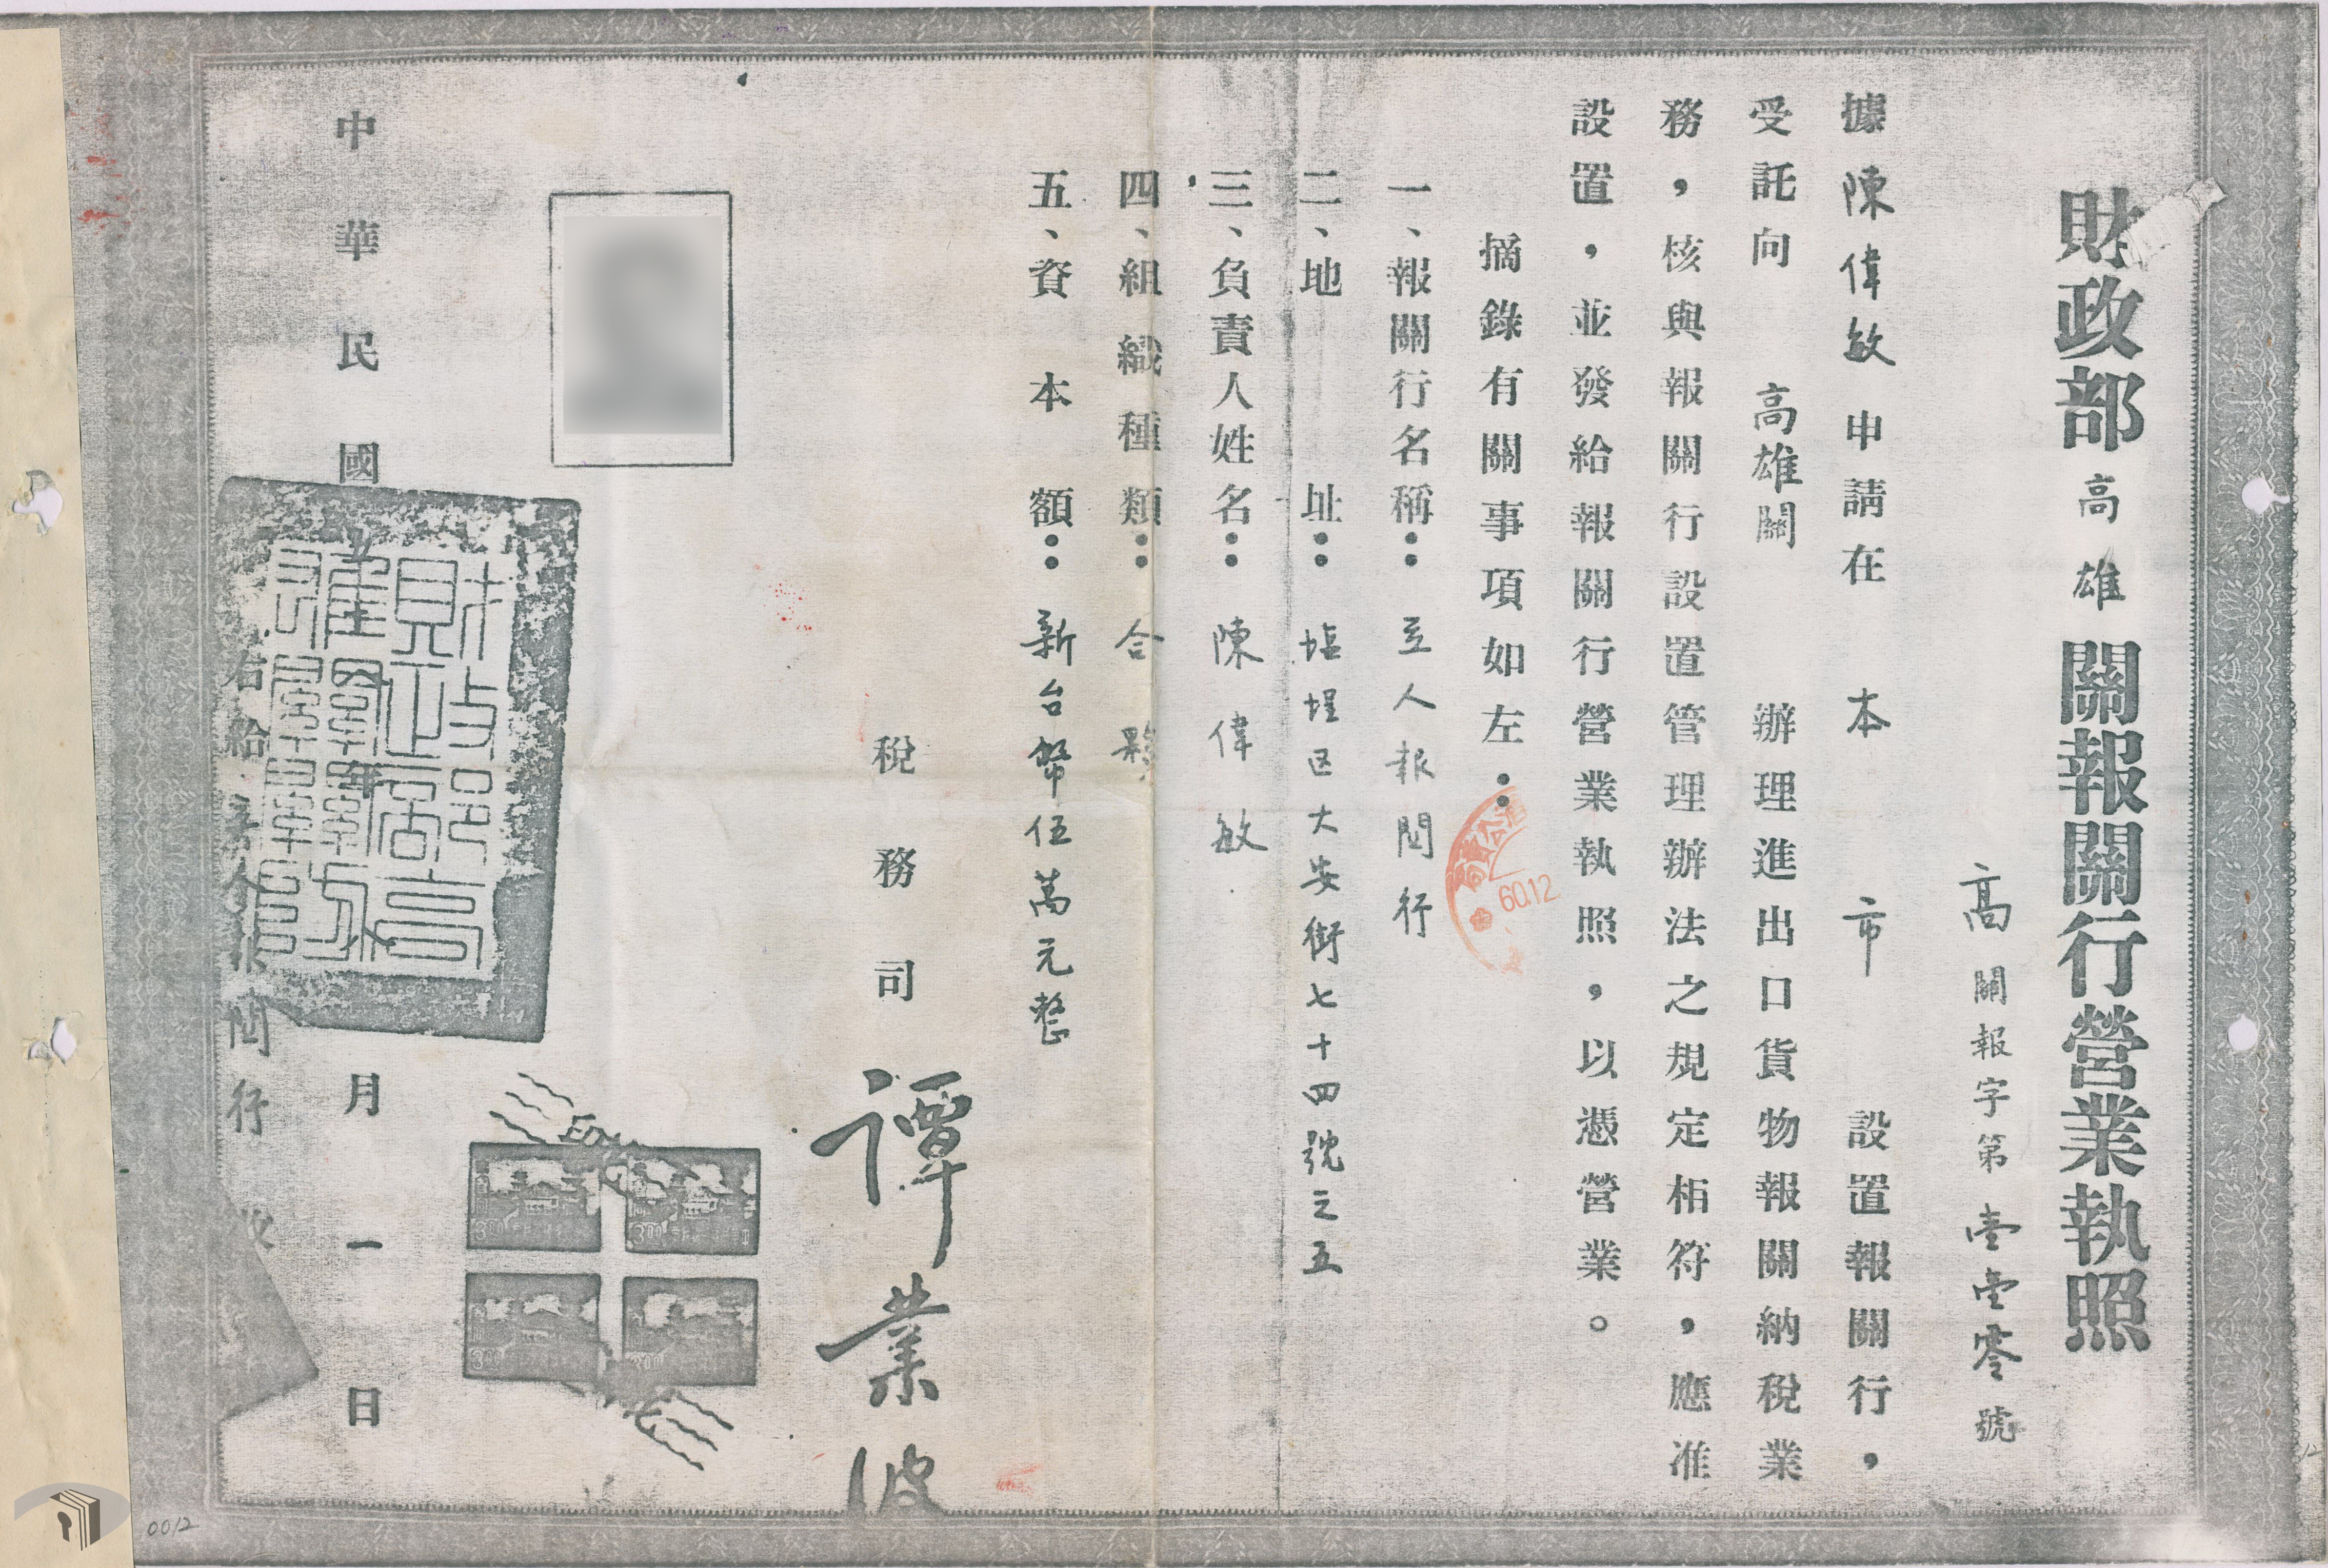 財政部高雄關報關行營業執照
高關報字第壹壹零號
據陳偉敏申請在本市設置報關行，
受託向高雄關辦理進出口貨物報關納稅業
務，核與報關行設置管理辦法之規定相符，應准
設置，並發給報關行營業執照，以憑營業。
摘錄有關事項如左：
一、報關行名稱：立人報関行
二、地址：塩埕区大安街七十四號之五
三、負責人姓名：陳偉敏
四、組織種類：合夥
五、資本額：新台幣伍萬元整
稅務司 譚業
中華民國 年 月一日
右給 人報関行
60.12
0012